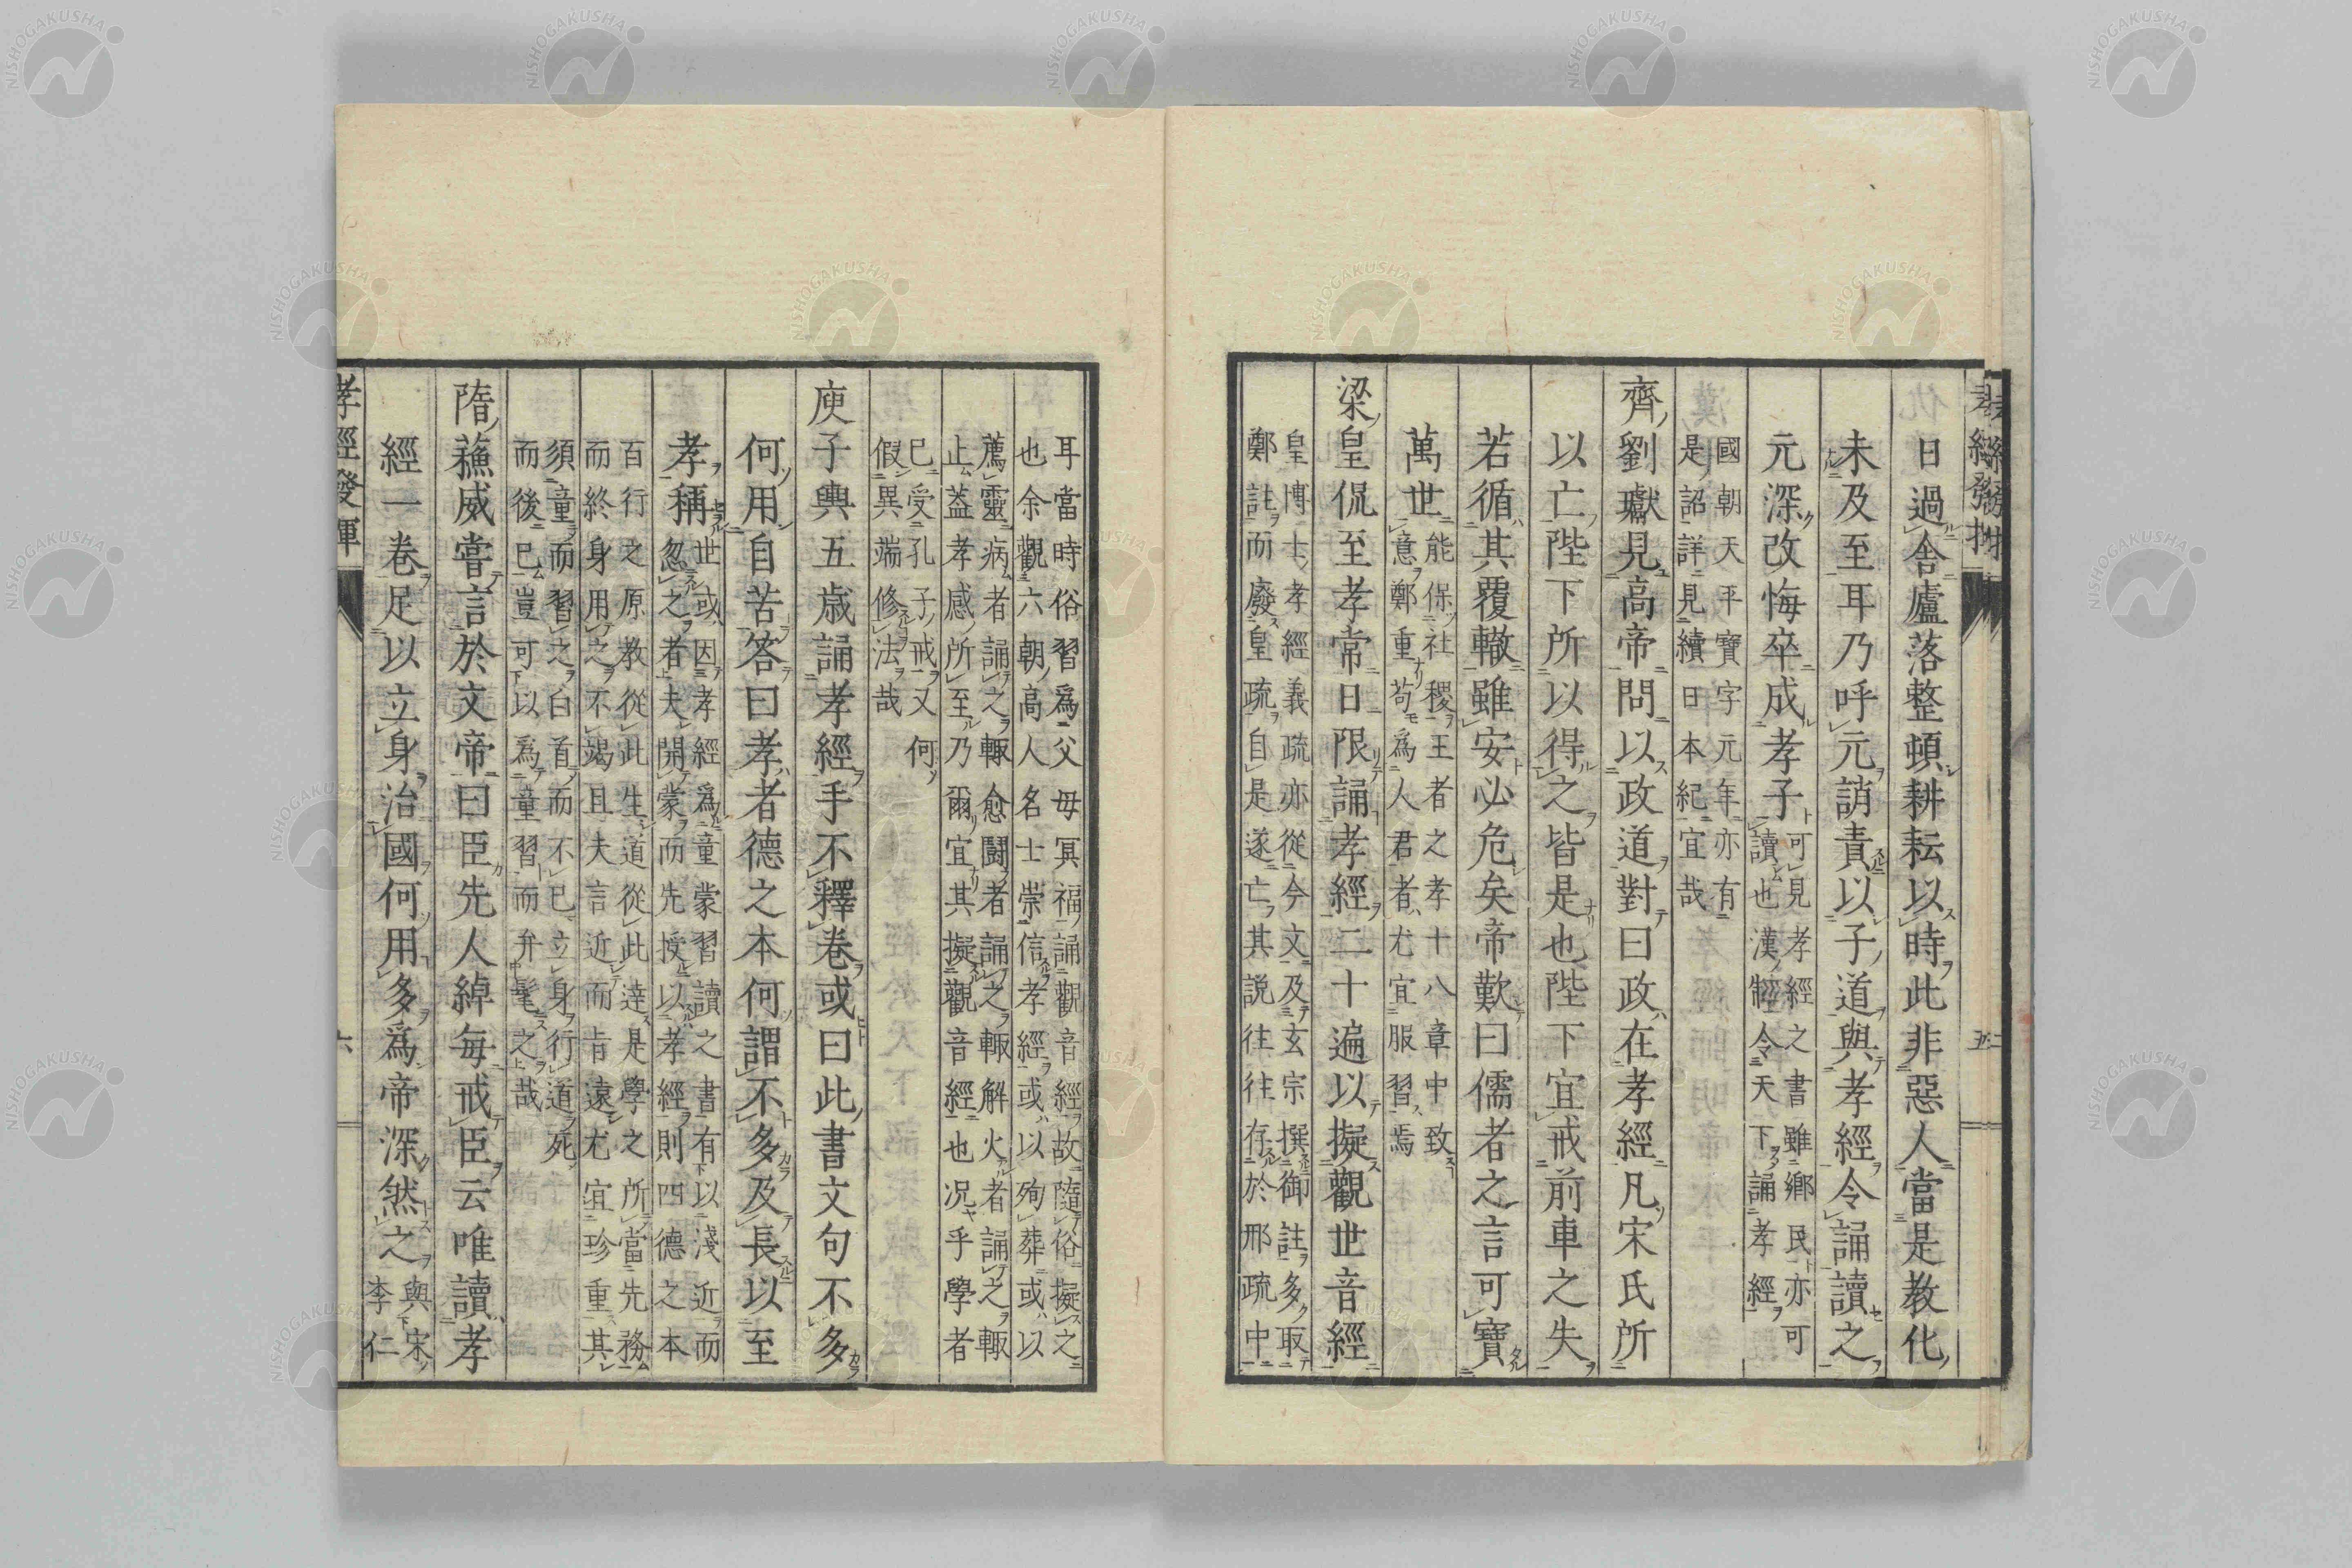 日過舎廬落整頓耕耘以時此非惡人當是教化
未及至耳乃呼元誚責以子道與孝經令誦讀之
元深改悔卒成孝子
可見孝經之書雖鄉民亦可
讀也漢制令天下誦孝經
國朝天平寶字元年亦有
是詔詳見續日本紀宜哉
齊劉瓛見高帝問以政道對曰政在孝經凡宋氏所
以亡陛下所以得之皆是也陛下宜戒前車之失
若循其覆轍雖安必危矣帝歎曰儒者之言可寶
萬世
能保社稷王者之孝十八章中致
意鄭重苟爲人君者尤宜服習焉
梁皇侃至孝常日限誦孝經二十遍以擬觀世音經
皇博士孝經義疏亦從今文及玄宗撰御註多取
鄭註而廢皇疏自是遂亡其説往往存於邢疏中
耳當時俗習爲父母冥福誦觀音經故隨俗擬之
也余觀六朝高人名士崇信孝經或以殉葬或以
薦靈病者誦之輙愈鬪者誦之輙解火者誦之輙
止葢孝感所至乃爾宜其擬觀音經也況乎學者
已受孔子戒又何
假異端修法哉
庾子輿五歲誦孝經手不釋卷或曰此書文句不多
何用自苦答曰孝者德之本何謂不多及長以至
孝稱
世或因孝經爲童蒙習讀之書有以淺近而
忽之者夫開蒙而先授以孝經則四德之本
百行之原教從此生道從此達是學之所當先務
而終身用之不竭且夫言近而旨遠尤宜珍重其
須童而習之白首而不已立身行道死
而後已豈可以爲童習而弁髦之哉
隋蘓威嘗言於文帝曰臣先人綽每戒臣云唯讀孝
經一卷足以立身治國何用多爲帝深然之
與宋
李仁
孝經發揮
六